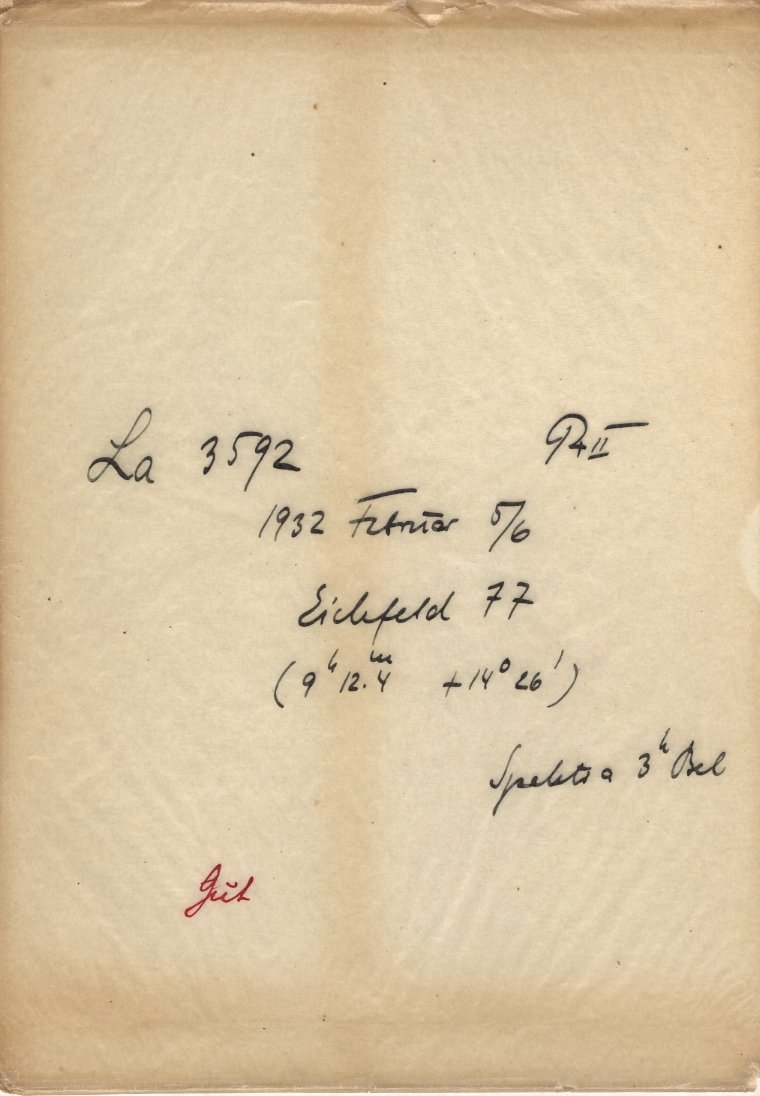 La 3592 P4II
1932 Februar 5/6
Eichfeld 77
(9ʰ12.ᵐ4 +14°26')
Spektra 3ʰ Bel
Gut